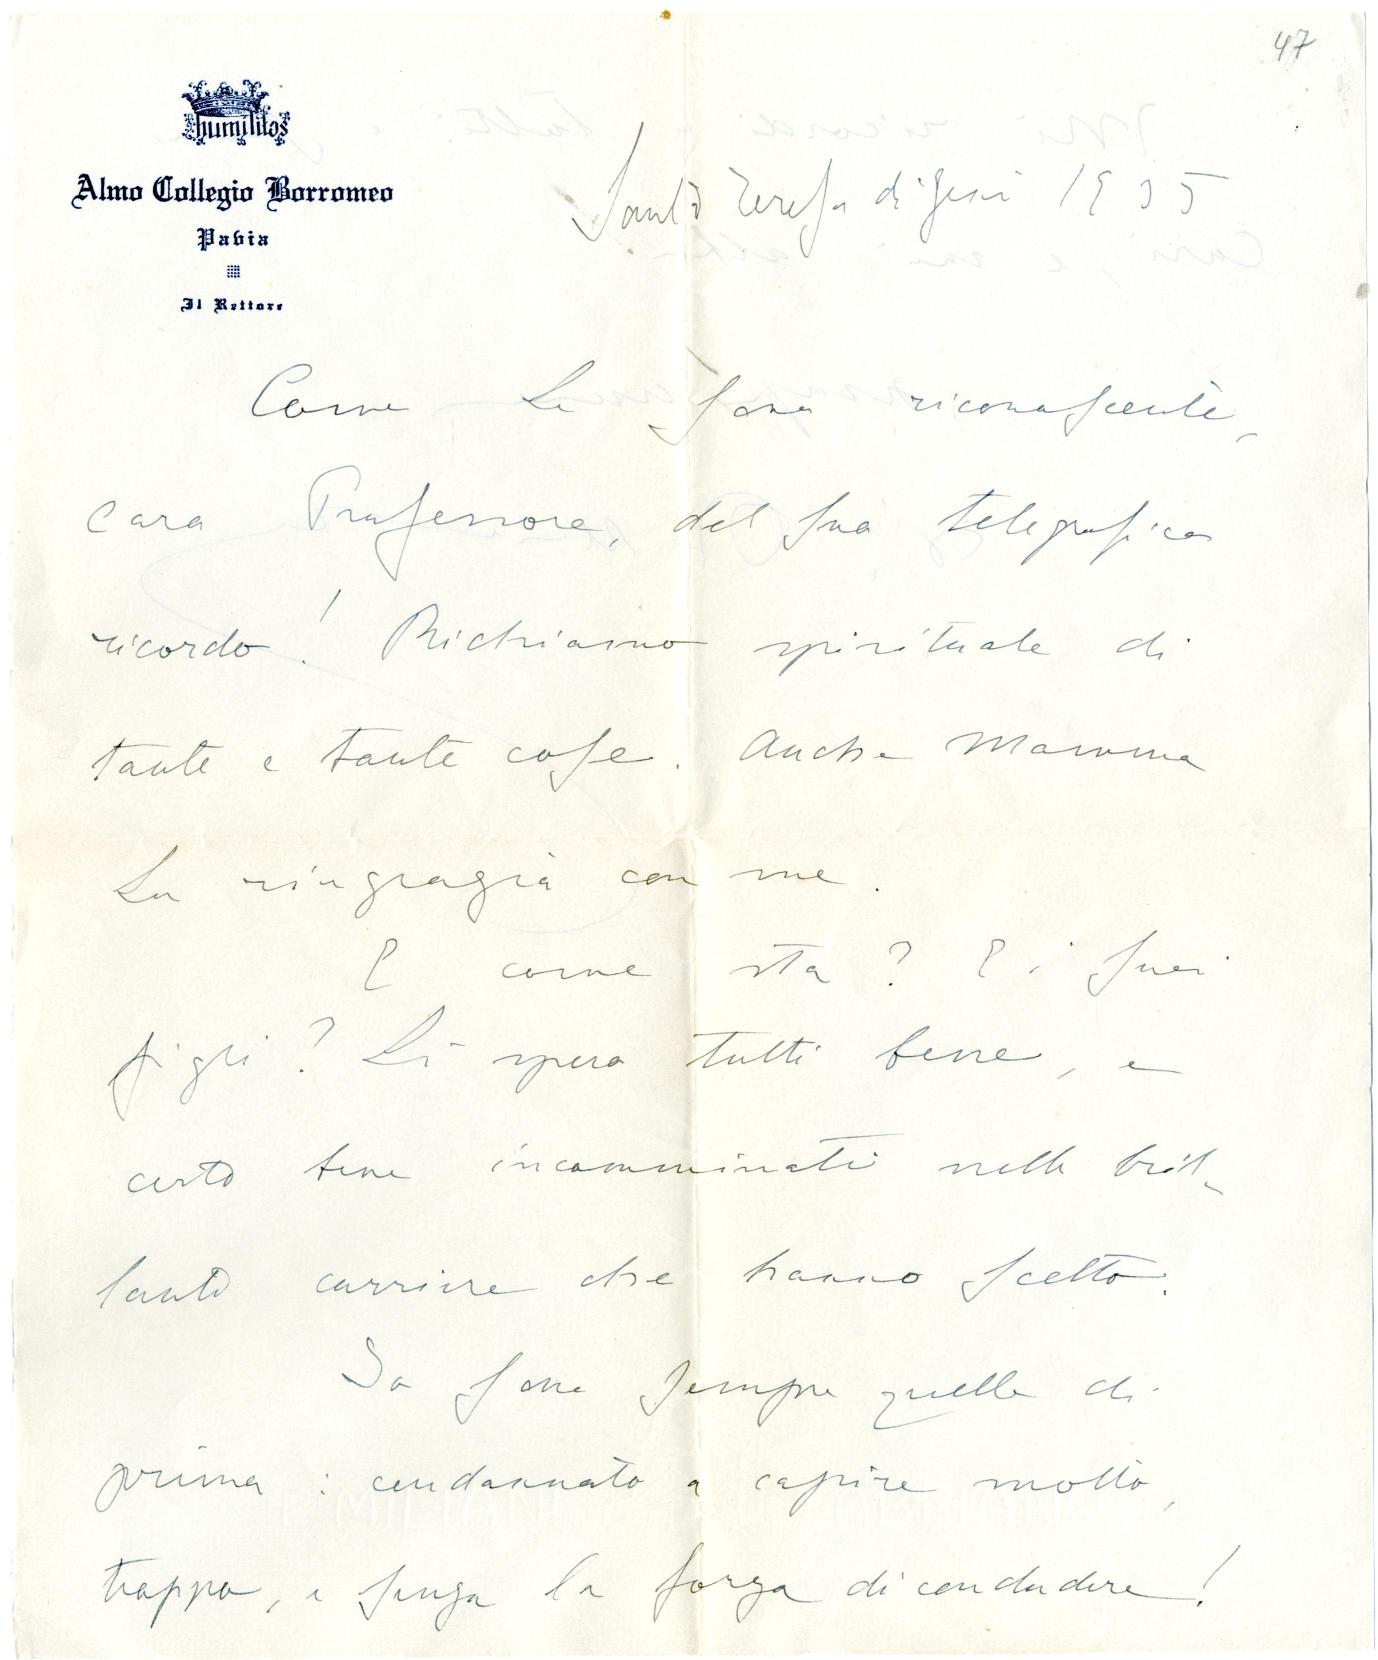 47
humilitas
Almo Collegio Borromeo
Pavia
Il Rettore
Santa Teresa di Gesù 1935
Come Le sono riconoscente,
caro Professore, del suo telegrafico
ricordo! Richiamo spirituale di
tante e tante cose. Anche Mamma
La ringrazia con me.
E come sta? E i suoi
figli? Li spero tutti bene, e
certo bene incamminati nelle bril-
lanti carriere che hanno scelto.
Io sono sempre quello di
prima: condannato a capire molto,
troppo, e senza la forza di concludere!